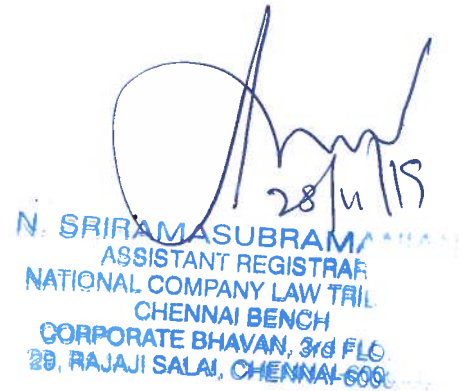 28/11/19
N. SRIRAMASUBRAMANIAN
ASSISTANT REGISTRAR
NATIONAL COMPANY LAW TRI
CHENNAI BENCH
CORPORATE BHAVAN, 3rd FLO
29, RAJAJI SALAI, CHENNAI-600